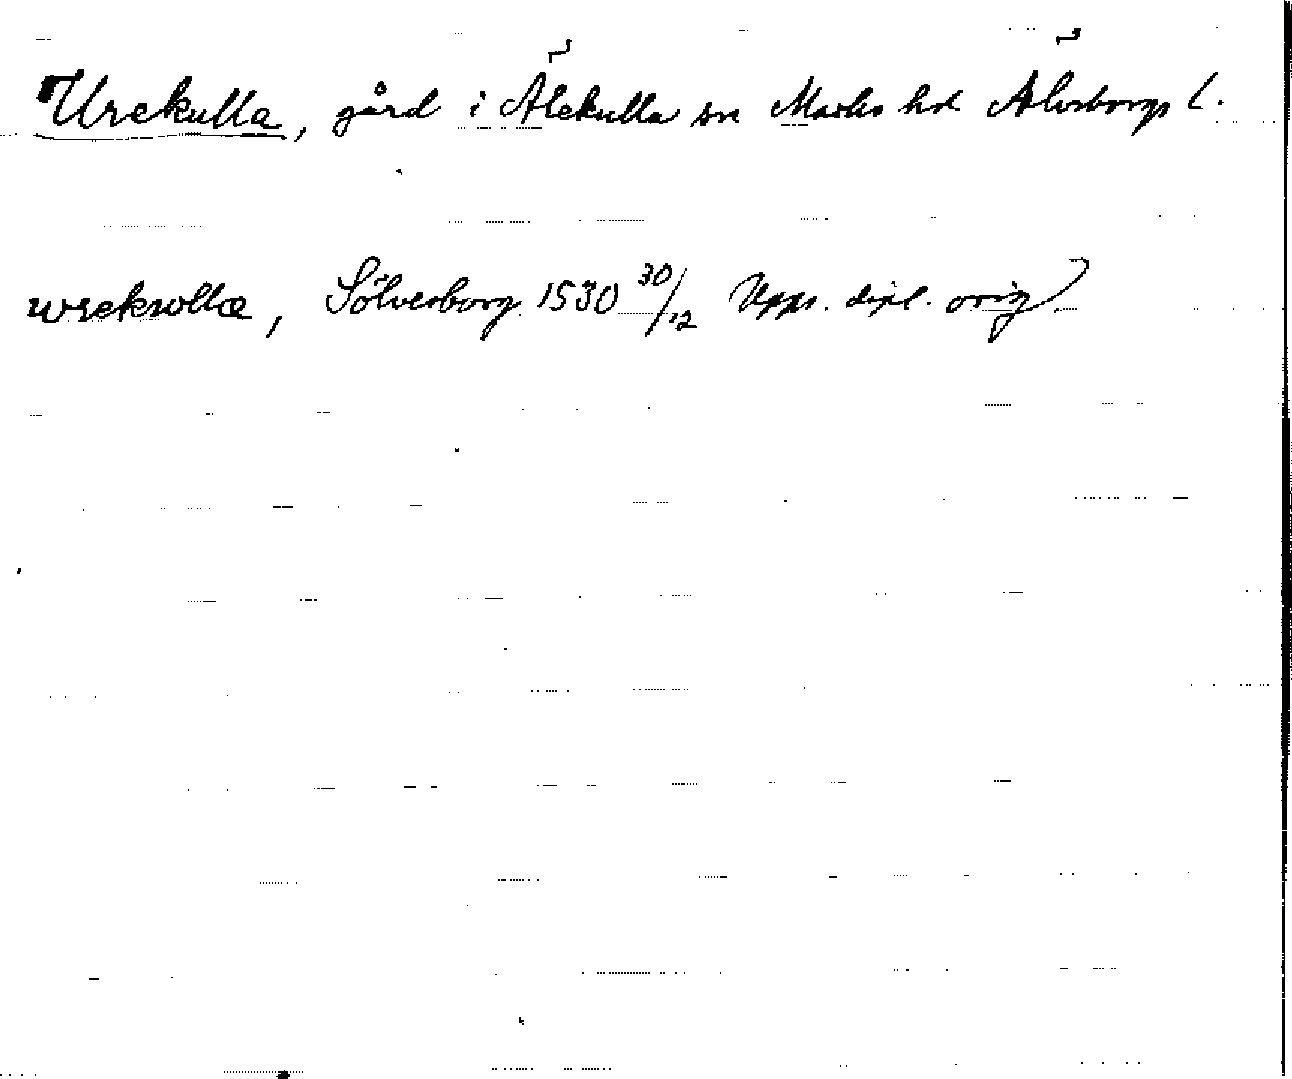 Urekulla, gård i Älekulla sn Marks hd Älvsborgs l.
wrekwllæ, Sölvesborg 1530 30/12 Upps. dipl. orig.